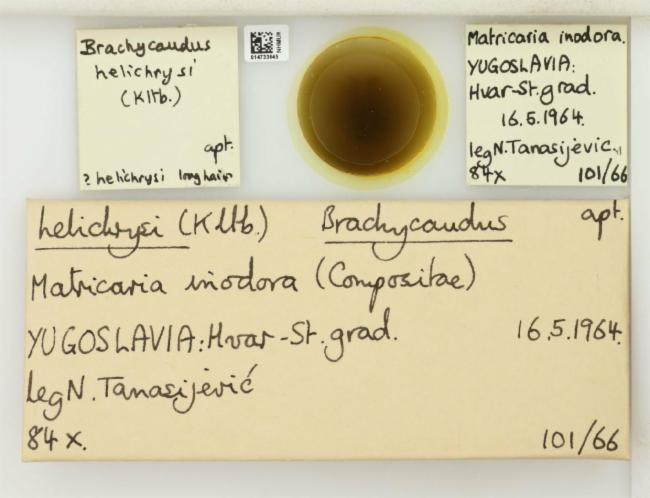 Brachycaudus
helichrysi
(Kltb.)
apt.
? helichrysi longhair
014733845
Matricaria inodora.
YUGOSLAVIA:
Hvar-St.grad.
16.5.1964.
leg N.Tanasijevic
84x 101/66
helichrysi (Kltb.) Brachycaudus apt.
Matricaria inodora (Compositae)
YUGOSLAVIA: Hvar-St.grad. 16.5.1964.
leg N. Tanasijević
84 x. 101/66